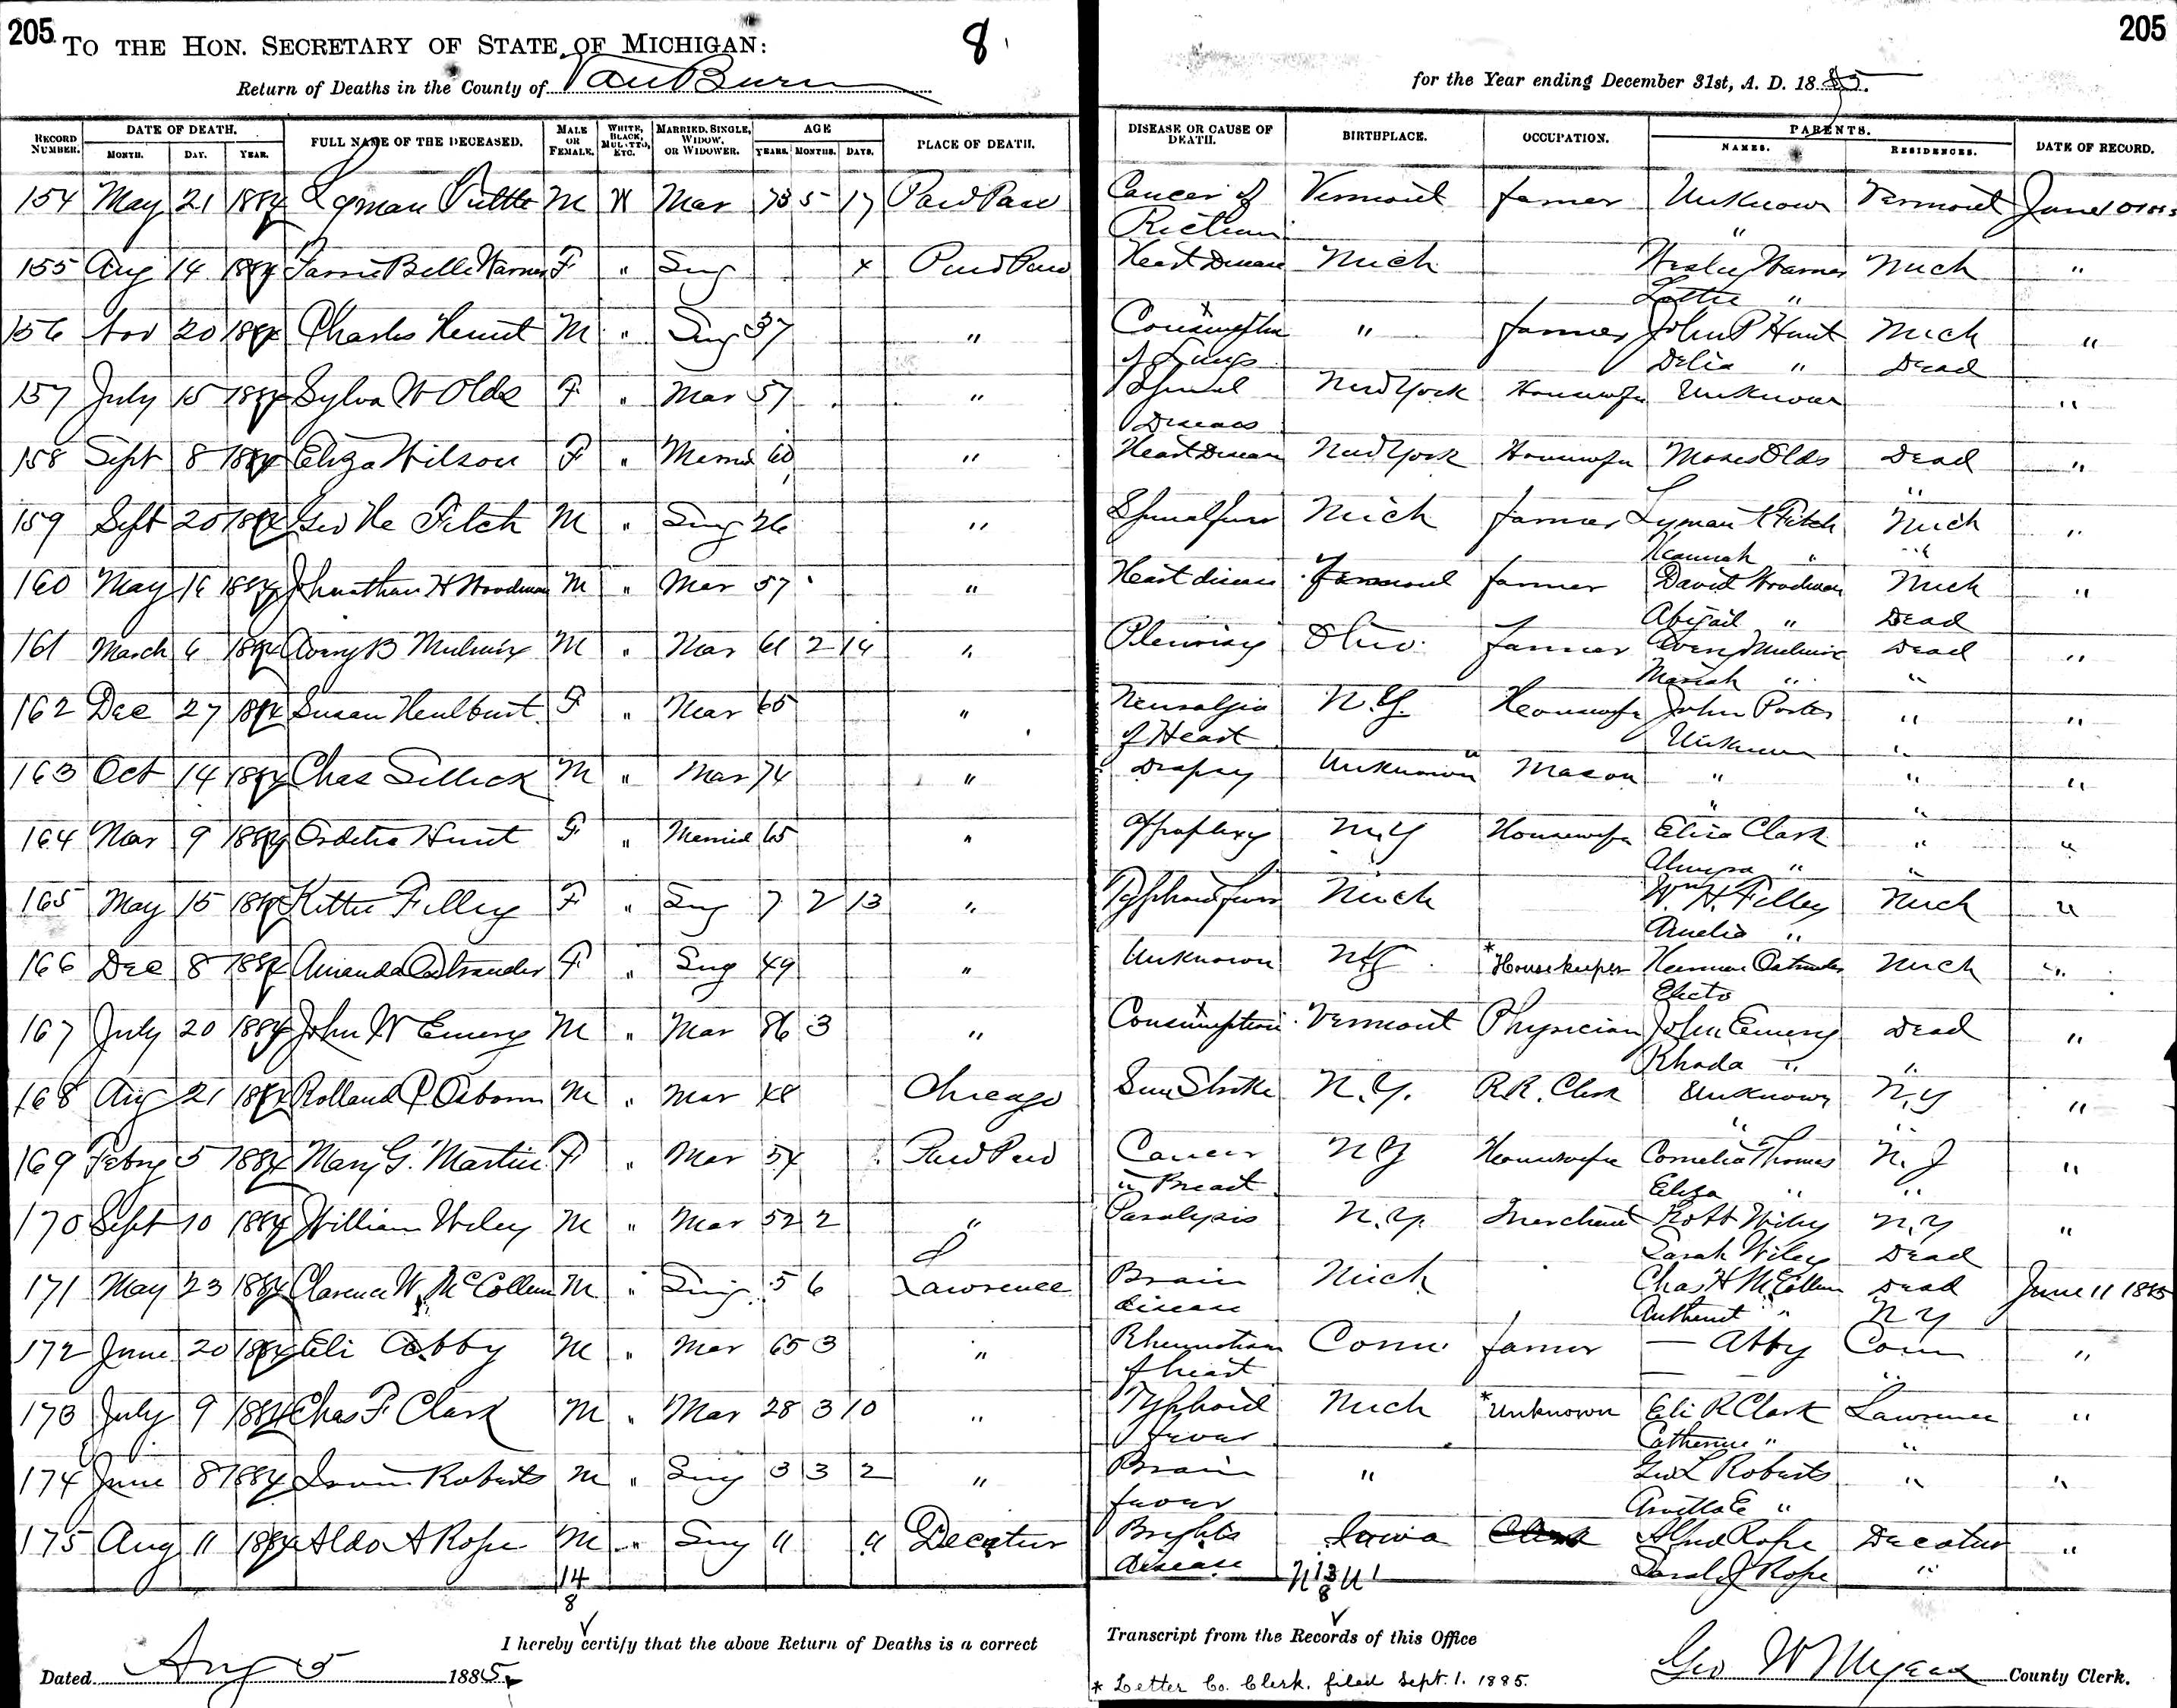 205 TO THE HON. SECRETARY OF STATE OF MICHIGAN: 8 205
Return of Deaths in the County of Van Buren for the Year ending December 31st, A. D. 1885.
RECORD NUMBER. DATE OF DEATH. MONTH. DAY. YEAR. FULL NAME OF THE DECEASED. MALE OR FEMALE. WHITE, BLACK, MULATTO, ETC. MARRIED, SINGLE, WIDOW, OR WIDOWER. AGE YEARS. MONTHS. DAYS. PLACE OF DEATH. DISEASE OR CAUSE OF DEATH. BIRTHPLACE. OCCUPATION. PARENTS. NAMES. RESIDENCES. DATE OF RECORD.
154 May 21 1884 Lyman Tuttle M W Mar 73 5 17 Paw Paw Cancer of Vermont farmer Unknown Vermont June 10 1885
Rictium "
155 Aug 14 1884 Belle Warner F " Sing x Paw Paw Heart Disease Mich Warner Mich "
Lottie "
156 Nov 20 1884 Charles Hunt M " Sing 37 " Consumption " farmer John P Hunt Mich "
of Lungs Delia " Dead
157 July 15 1884 Sylva W Olds F " Mar 57 " Spinal New York Housewife Unknown "
Diseas
158 Sept 8 1884 Eliza Wilson F " Married 60 " Heart Disease New York Housewife Moses Olds Dead "
"
159 Sept 20 1884 Geo Fitch M " Sing 26 " Mich farmer Lyman Fitch Mich "
Hannah " "
160 May 16 1884 Johnathan H Woodman M " Mar 57 " Heart disease Vermont farmer David Woodman Mich "
Abigail " Dead
161 March 6 1884 Avery B Mulnix M " Mar 61 2 14 " Pleurisy Ohio farmer Avery Mulnix Dead "
Mariah " "
162 Dec 27 1884 Susan Hulburt F " Mar 65 " Neuralgia N.Y. Housewife John Porter " "
of Heart Unknown "
163 Oct 14 1884 Chas Sellick M " Mar 74 " Dropsy Unknown Mason " " "
" "
164 Mar 9 1884 Ordelia Hunt F " Married 65 " Apoplexy N.Y Housewife Clark " "
Almyra " "
165 May 15 1884 Kittie Filley F " Sing 7 2 13 " Typhoid fever Mich Wm H. Filley Mich "
Amelia "
166 Dec 8 1884 Amanda Ostrander F " Sing 49 " Unknown N.Y. *Housekeeper Herman Ostrander Mich "
Electo
167 July 20 1884 John W Emery M " Mar 86 3 " Consumption Vermont Physician John Emery Dead "
Rhoda " "
168 Aug 21 1884 Rolland P Osborn M " Mar 48 Chicago Sun Stroke N.Y. R.R. Clerk Unknown N.Y "
" "
169 Febry 5 1884 Mary G. Martin F " Mar 54 Paw Paw Cancer N.Y Housewife Cornelia Thomas N.J "
in Breast Eliza " "
170 Sept 10 1884 William Wiley M " Mar 52 2 " Paralysis N.Y. Merchant Robt Wiley N.Y "
Sarah Wiley Dead
171 May 23 1884 Clarence W McCollum M " Sing 5 6 Lawrence Brain Mich Chas H McCollum Dead June 11 1885
disease " N Y
172 June 20 1884 Eli Abby M " Mar 65 3 " Rheumatism Conn. farmer — Abby Conn "
of heart — "
173 July 9 1884 Chas F Clark M " Mar 28 3 10 " Typhoid Mich *Unknown Eli R Clark Lawrence "
fever Catherine " "
174 June 8 1884 Irvin Roberts M " Sing 3 3 2 " Brain " Geo L Roberts " "
fever Arvilla E "
175 Aug 11 1884 Aldo A Rope M " Sing 11 11 Decatur Brights Iowa Clerk Rope Decatur "
disease Sarah J Rope "
14
8
13
8
I hereby certify that the above Return of Deaths is a correct Transcript from the Records of this Office
Dated Aug 5 1885. Geo W Myers County Clerk.
* Letter Co. Clerk. filed Sept. 1. 1885.